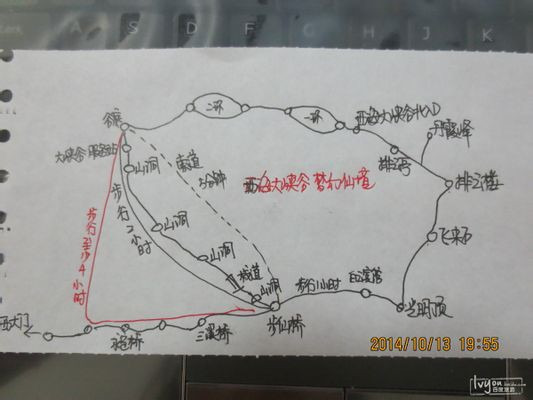 A
S
D
F
G
H
J
K
二环
一环
西海大峡谷北入口
丹霞峰
谷底
排云亭
大峡谷服务站
山洞
缆道
3分钟
西海大峡谷 梦幻仙境
排云楼
步行2小时
山洞
飞来石
山洞
步行至少4小时
栈道
山洞
步行1小时
白云宾馆
光明顶
步仙桥
西大门
三溪桥
2014/10/13 19:55
lvyou
百度旅游